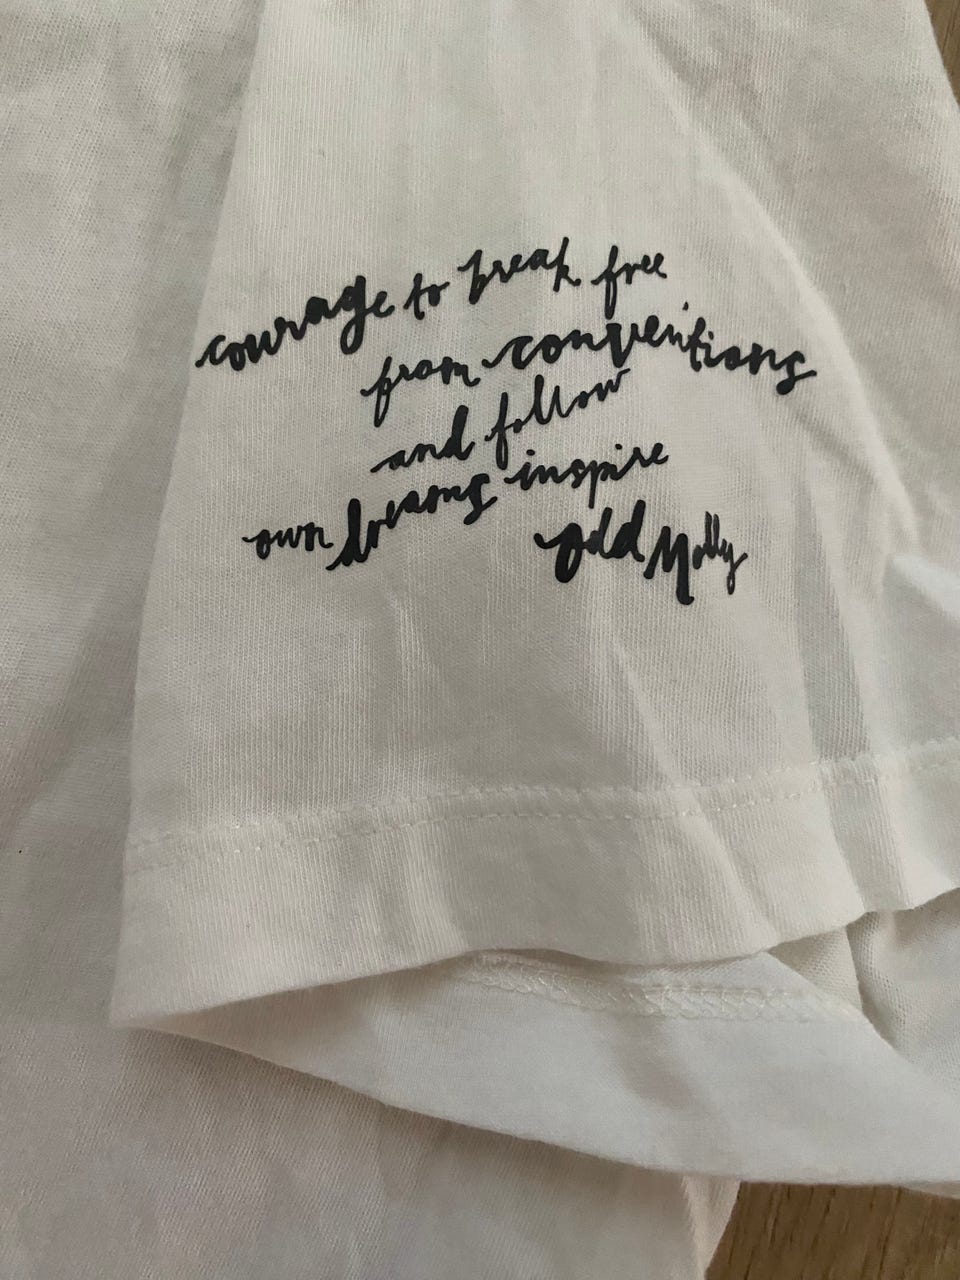 courage to break free
from conventions
and follow
own dreams inspire
odd Molly